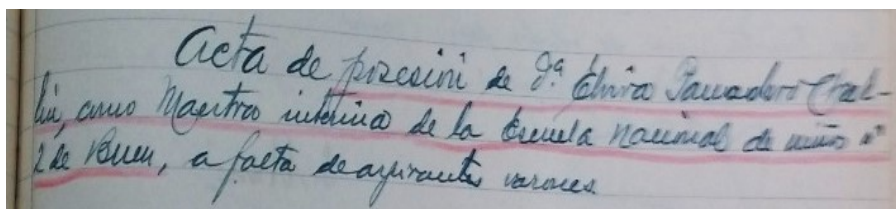 Acta de posesión de Dª Elvira Panadero
lin, como Maestra interina de la Escuela Nacional de niños nº
2 de Bueu, a falta de aspirantes varones.